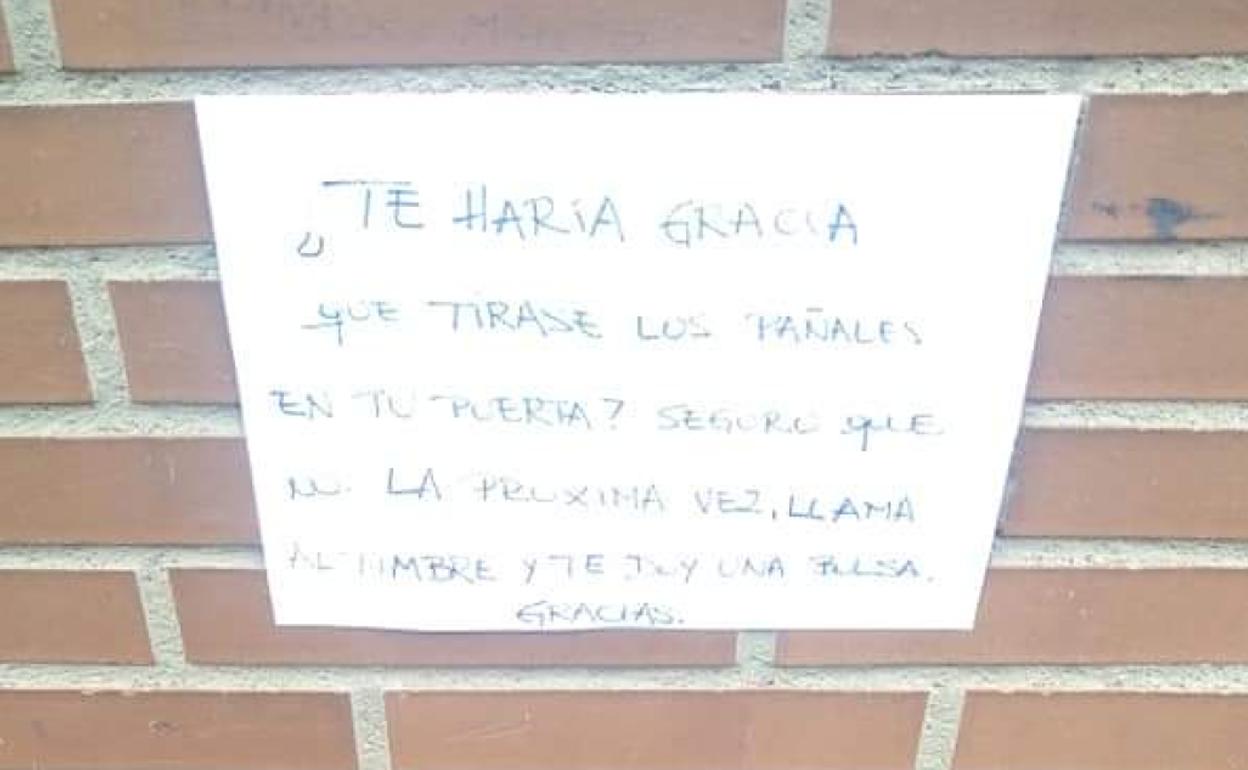 ¿TE HARÍA GRACIA
QUE TIRASE LOS PAÑALES
EN TU PUERTA? SEGURO QUE
NO. LA PROXIMA VEZ, LLAMA
AL TIMBRE Y TE DOY UNA BOLSA.
GRACIAS.